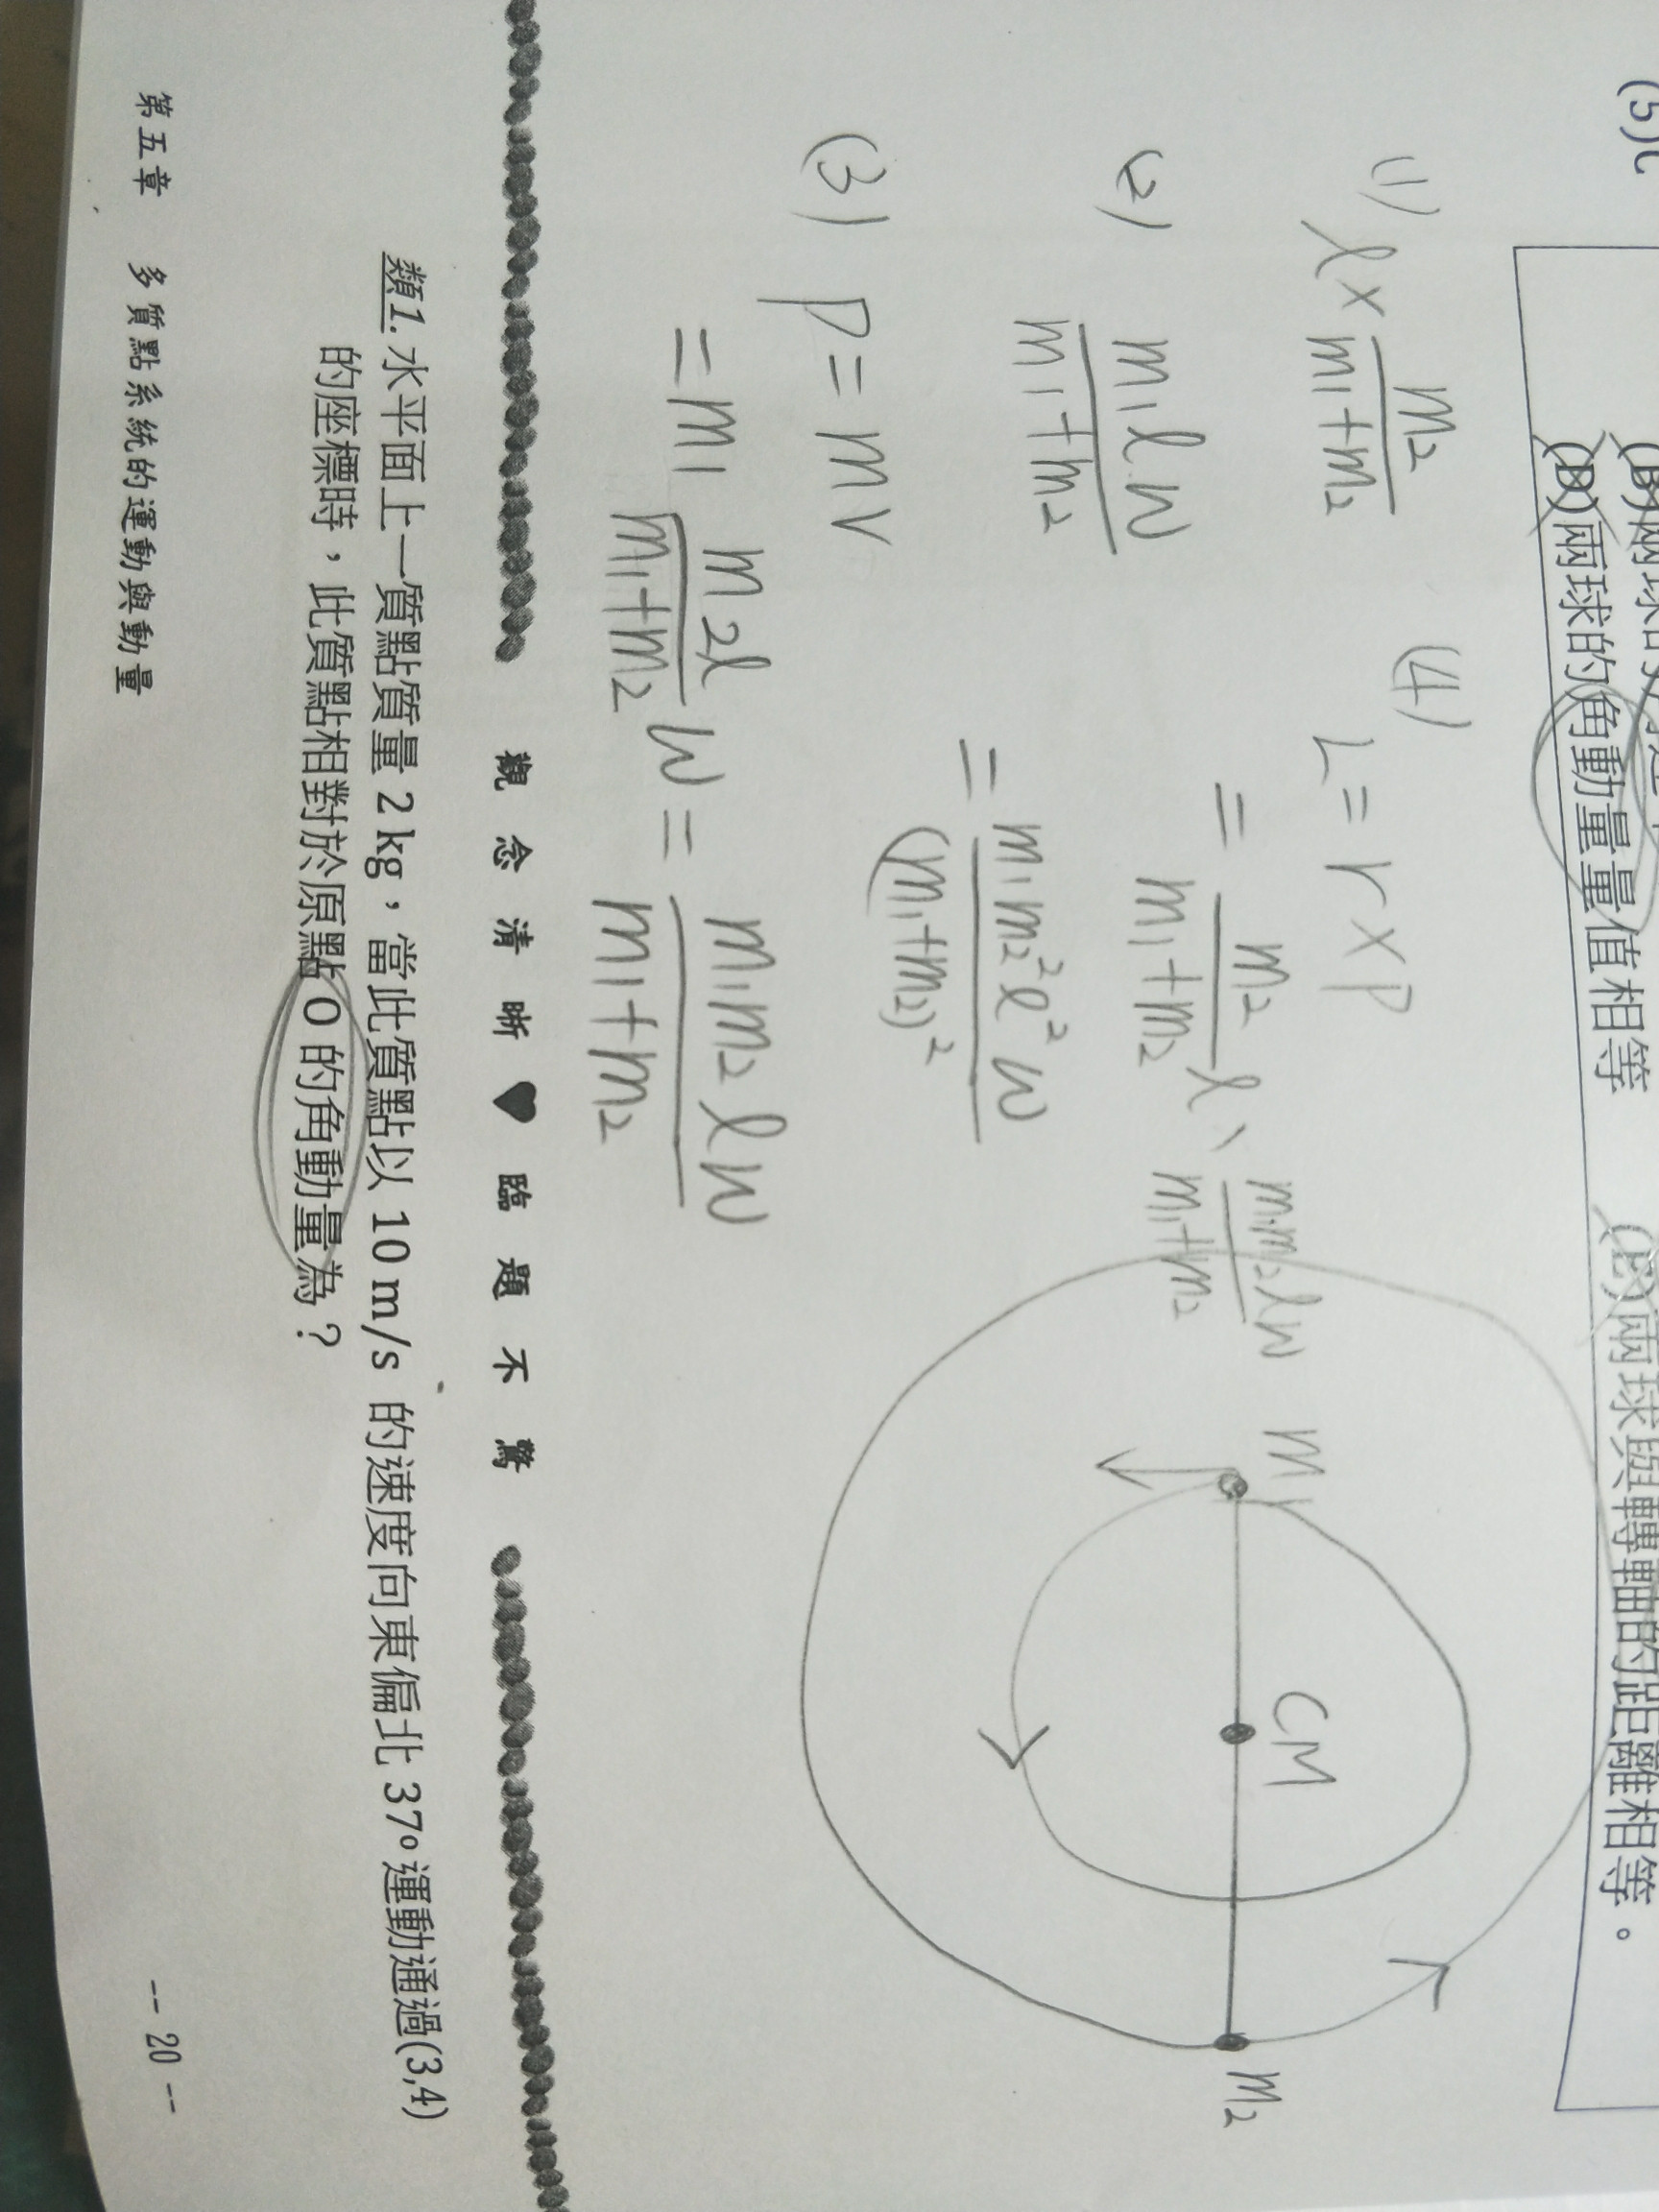 (5)C
(B)兩球的
(D)兩球的角動量量值相等 (E)兩球與轉軸的距離相等。
(1) l× m2/(m1+m2)
(2) m1lw/(m1+m2)
(3) P=mv
=m1 m2l/(m1+m2) w = m1m2lw/(m1+m2)
(4) L=r×P
= m2/(m1+m2) l、m1m2lw/(m1+m2)
= m1m2²l²w/(m1+m2)²
m1
CM
m2
觀念清晰♥臨題不驚
類1.水平面上一質點質量 2 kg,當此質點以 10 m/s 的速度向東偏北 37°運動通過(3,4)
的座標時,此質點相對於原點 O 的角動量為?
第五章 多質點系統的運動與動量
-- 20 --